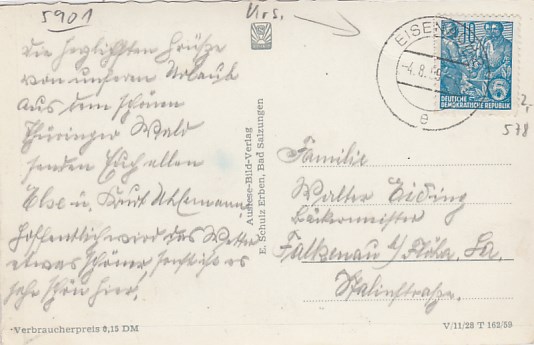 5901
Urs.
Die herzlichsten Grüße
von unserem Urlaub
aus dem schönen
Thüringer Wald
senden Euch allen
Else u. Kurt Uhlemann.
Hoffentlich wird das Wetter
etwas schöner sonst ist es
sehr schön hier!
Verbraucherpreis 0,15 DM
Auslese-Bild-Verlag
E. Schulz Erben, Bad Salzungen
EISEN
-4.8.59
e
DEUTSCHE
DEMOKRATISCHE REPUBLIK
2,-
578
Familie
Walter
Bäckermeister
Falkenau b/ Flöha, Sa.
Stalinstraße.
V/11/28 T 162/59